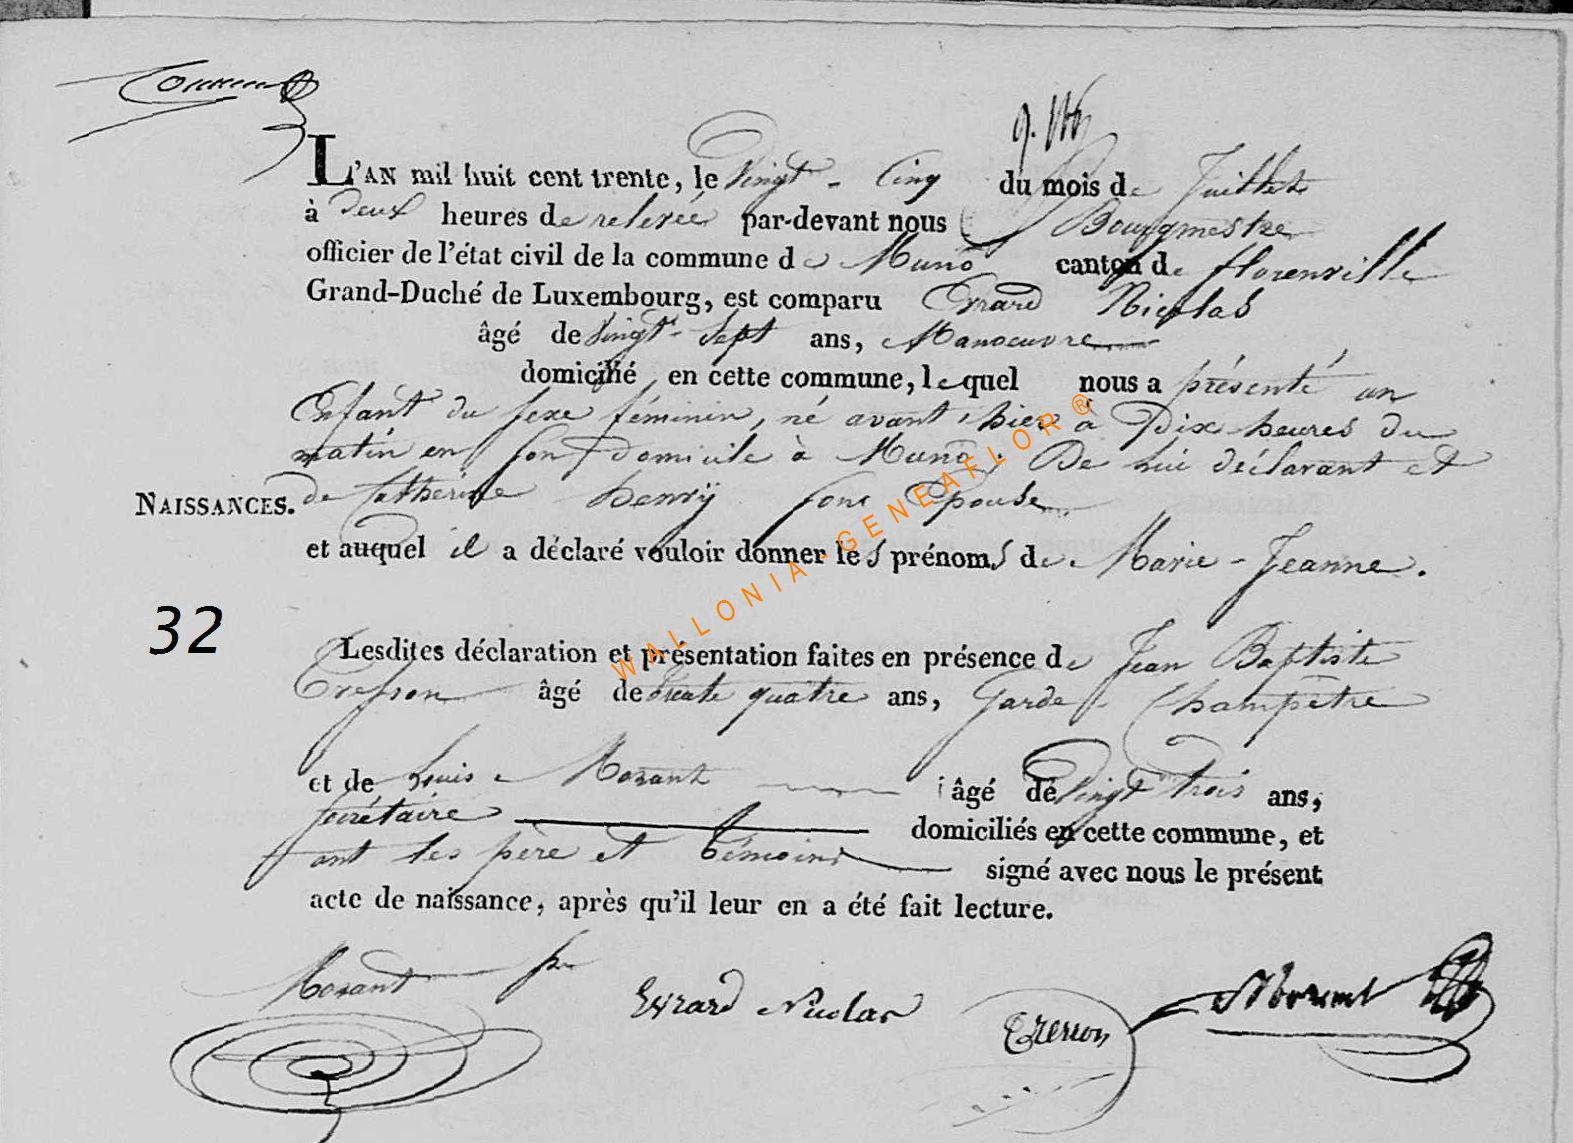 L'AN mil huit cent trente, le Vingt-Cinq du mois de Juillet
à deux heures de relevée par-devant nous Bourgmestre
officier de l'état civil de la commune de Muno canton de florenville
Grand-Duché de Luxembourg, est comparu Evrard Nicolas
âgé de Vingt-Sept ans, Manoeuvre
domicilié en cette commune, lequel nous a présenté un
Enfant du sexe féminin, né avant-hier à Dix heures du
matin en son domicile à Muno, De lui déclarant et
NAISSANCES. de Catherine henrÿ son Epouse
et auquel il a déclaré vouloir donner les prénoms de Marie-Jeanne.
WALLONIA-GENEAFLOR ®
32
Lesdites déclaration et présentation faites en présence de Jean Baptiste
âgé de trente quatre ans, Garde-Champêtre
et de Louis Morant âgé de Vingt trois ans,
secrétaire domiciliés en cette commune, et
ont les père et témoins signé avec nous le présent
acte de naissance, après qu'il leur en a été fait lecture.
Morant
Evrard Nicolas
Morant